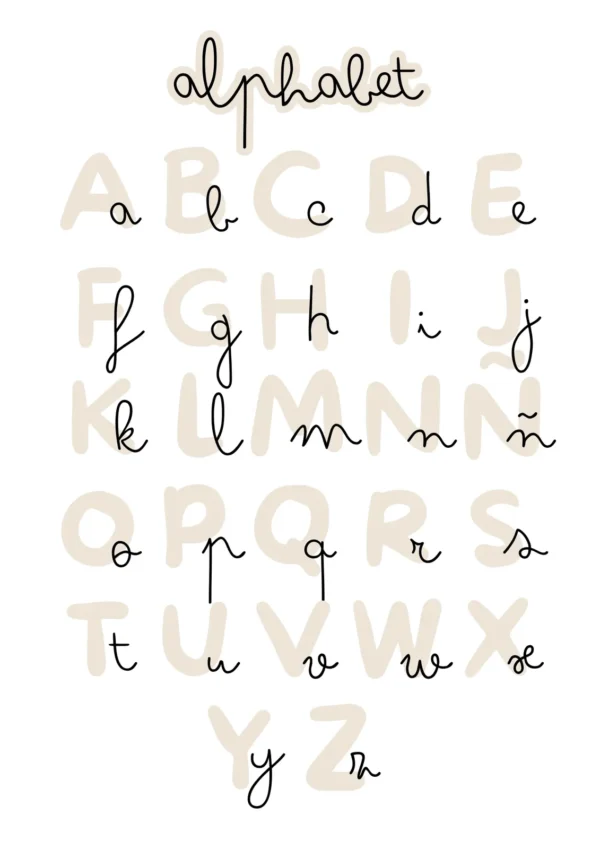 alphabet
A a B b C c D d E e
F f G g H h I i J j
K k L l M m N n Ñ ñ
O o P p Q q R r S s
T t U u V v W w X x
Y y Z z